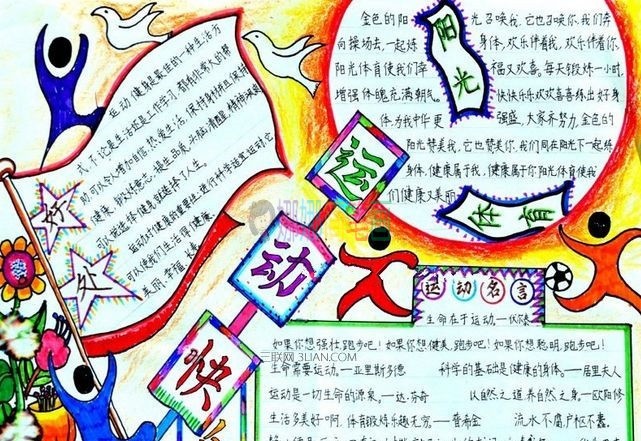 运动健身是最佳的一种生活方
式.不论是生活还是工作学习.都有你意想
可以令人增加自信.热爱生活.保持身材
健康.锻炼意志
可以说选择健身就选择了人生.
运动对健康的重要性.进行科学适宜运动它
可以使我们生活得健康、
美丽.幸福.长寿.
好
处
金色的阳光召唤我,它也召唤你,我们奔
向操场去,一起炼身体,欢乐伴着我,欢乐伴着你,
阳光体育使我们幸福又欢喜。每天锻炼一小时,
增强体魄充满朝气。快快乐乐欢欢喜喜练出好身
体为我中华更强盛,大家齐努力,金色的
阳光赞美我,它也赞美你,我们同在阳光下一起练
身体,健康属于我,健康属于你阳光体育使我
们健康又美丽
阳光
体育
运
动
快
三联网 3LIAN.COM
运动名言
生命在于运动—伏尔泰
如果你想强壮,跑步吧!如果你想健美,跑步吧!如果你想聪明,跑步吧!
生命需要运动。—亚里斯多德 科学的基础是健康的身体。—居里夫人
运动是一切生命的源泉。—达·芬奇 以自然之道,养自然之身—欧阳修
生活多美好啊,体育锻炼乐趣无穷。—普希金 流水不腐户枢不蠹.